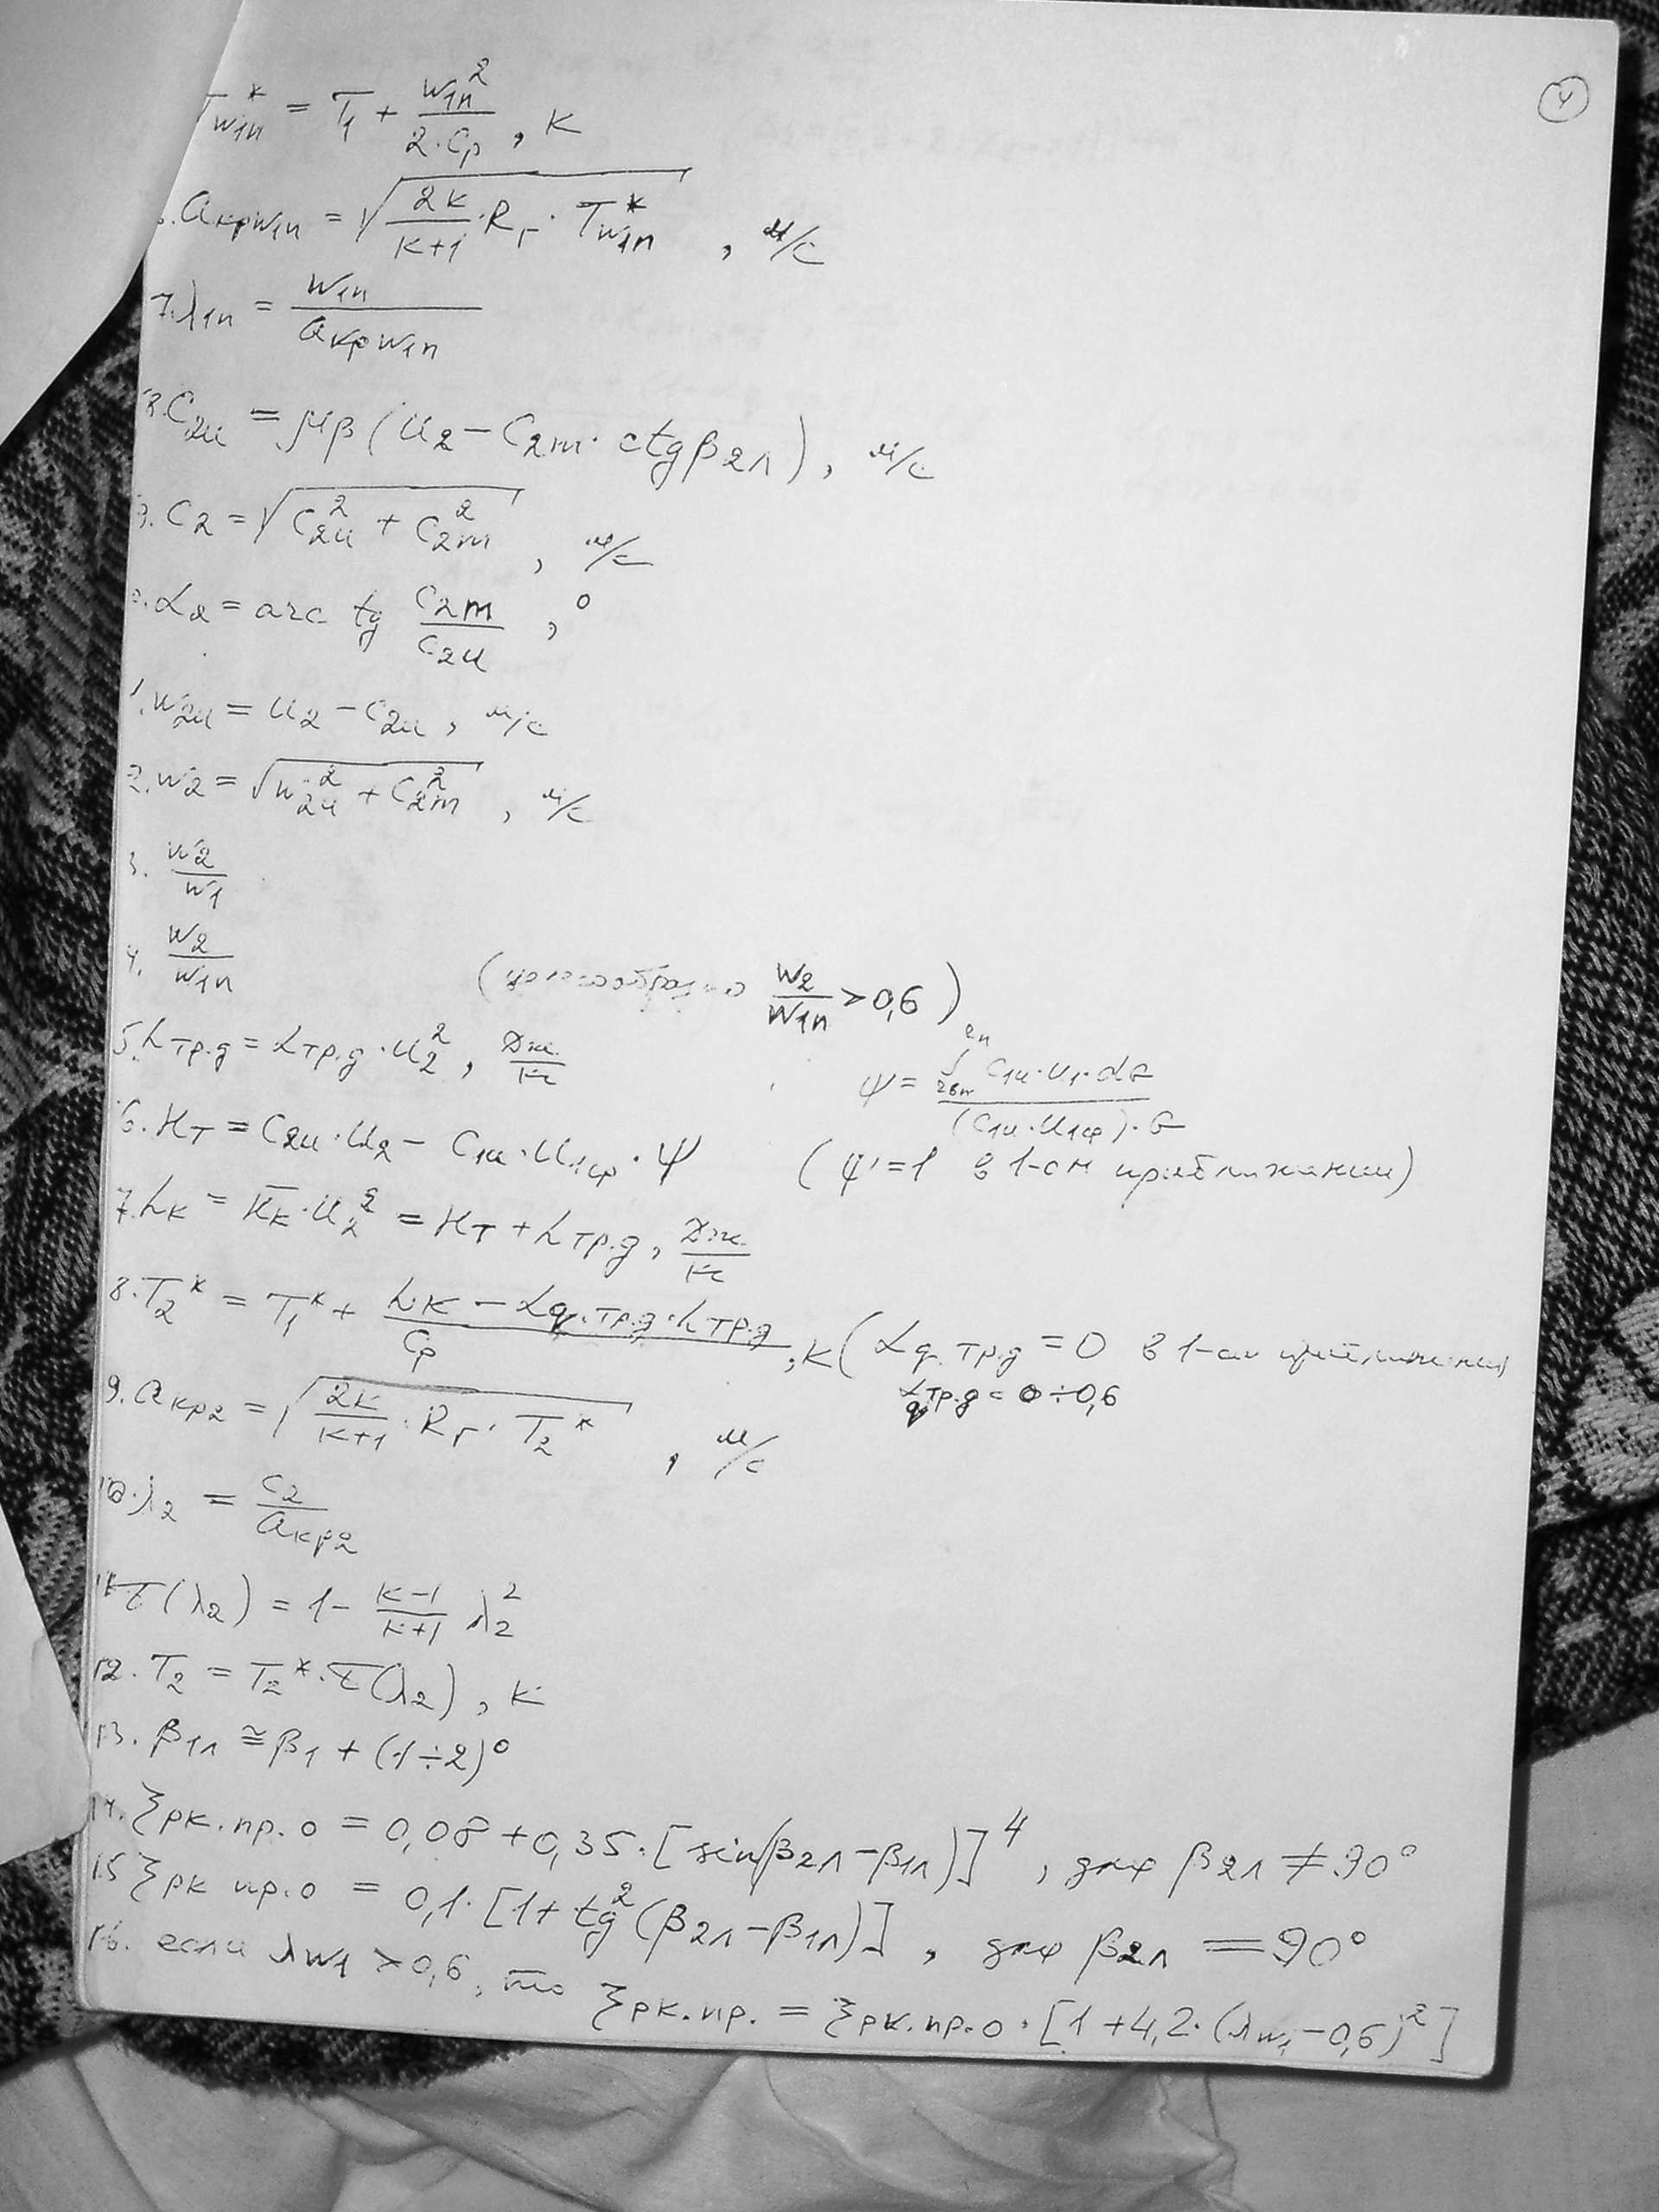 4
T*w1п = T1 + w1п² / 2·Cp, К
aкрw1п = √(2к/к+1 · Rг · T*w1п), м/с
7. λ1п = w1п / aкрw1п
8. C2u = μβ (u2 − C2m · ctgβ2л), м/с
9. C2 = √(C2u² + C2m²), м/с
α2 = arc tg C2m / C2u, °
1. w2u = u2 − C2u, м/с
2. w2 = √(w2u² + C2m²), м/с
3. w2 / w1
4. w2 / w1п (целесообразно w2 / w1п > 0,6)
5. hтр.д = αтр.д · u2², Дж/кг
ψ = ∫ C1u · u1 · dG / (C1u · u1ср) · G
6. Hт = C2u · u2 − C1u · u1ср · ψ (ψ = 1 в 1-ом приближении)
7. hк = H̄к · u2² = Hт + hтр.д, Дж/кг
8. T2* = T1* + hк − αq.тр.д · hтр.д / Cp, К (αq.тр.д = 0 в 1-ом приближении
αq тр.д = 0 ÷ 0,6
9. aкр2 = √(2к/к+1 · Rг · T2*), м/с
10. λ2 = C2 / aкр2
11. τ(λ2) = 1 − к−1 / к+1 λ2²
12. T2 = T2* · τ(λ2), К
13. β1л ≅ β1 + (1÷2)°
14. ξрк.пр.о = 0,08 + 0,35 · [sin(β2л − β1л)]⁴, для β2л ≠ 90°
15 ξрк пр.о = 0,1 · [1 + tg²(β2л − β1л)], для β2л = 90°
16. если λw1 > 0,6, то ξрк.пр. = ξрк.пр.о · [1 + 4,2 · (λw1 − 0,6)²]